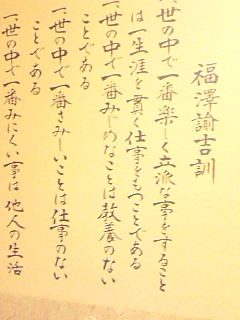 福澤諭吉訓
一、世の中で一番楽しく立派な事をすること
は一生涯を貫く仕事をもつことである
一、世の中で一番みじめなことは教養のない
ことである
一、世の中で一番さみしいことは仕事のない
ことである
一、世の中で一番みにくい事は他人の生活